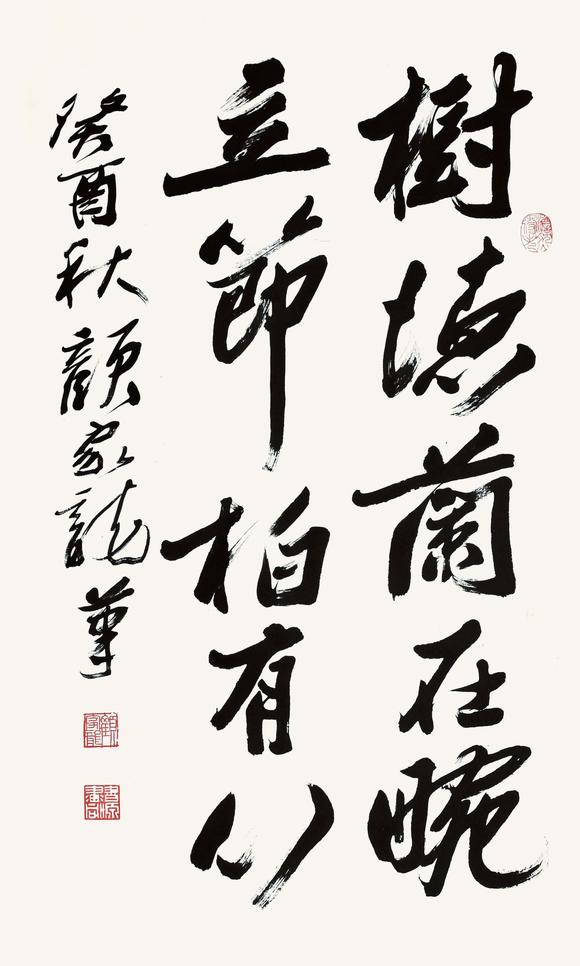 樹德蘭在畹
立節柏有心
癸酉秋顏家龍筆